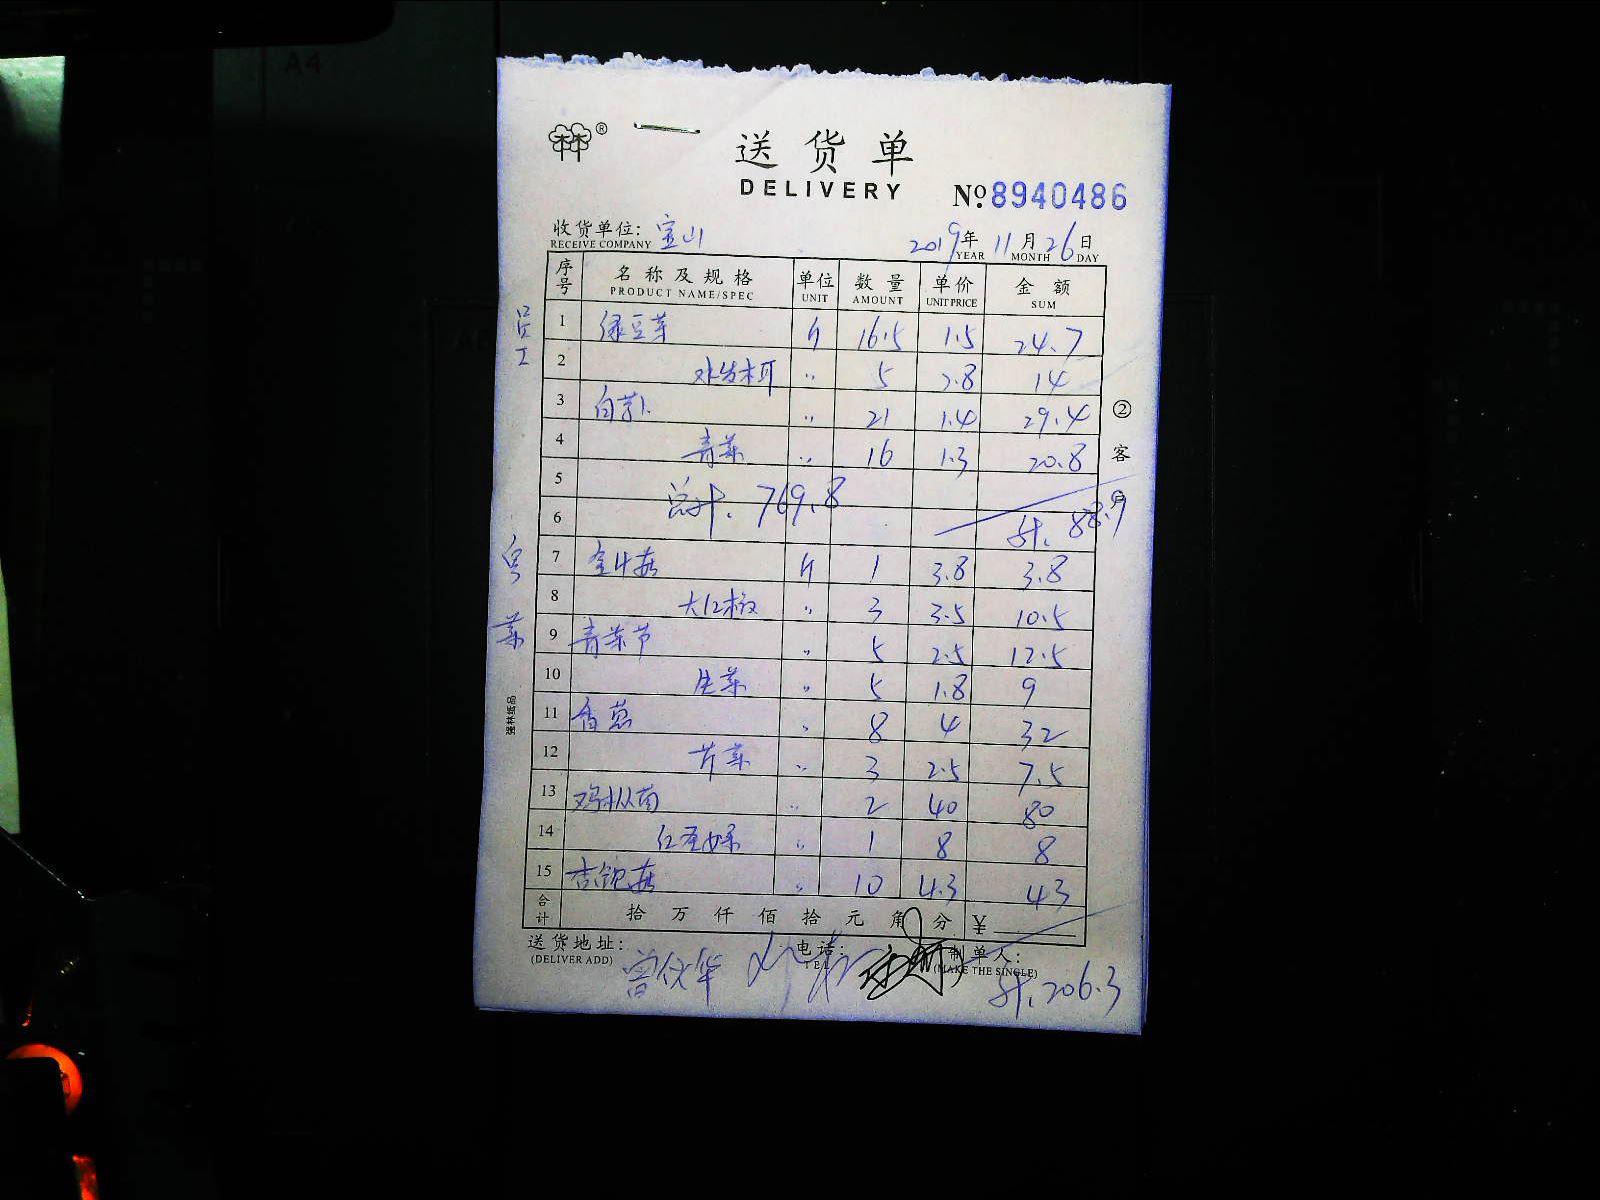 A4
送货单
DELIVERY
№ 8940486
收货单位: 宝山
RECEIVE COMPANY
2019年 11月 26日
YEAR MONTH DAY
序号 名称及规格 单位 数量 单价 金额
PRODUCT NAME/SPEC UNIT AMOUNT UNIT PRICE SUM
员工
1 绿豆芽 斤 16.5 1.5 24.7
2 水发木耳 〃 5 2.8 14
3 白萝卜 〃 21 1.4 29.4
4 青菜 〃 16 1.3 20.8
5 总计. 769.8
6 计. 88.9
7 金针菇 斤 1 3.8 3.8
8 大红椒 〃 3 3.5 10.5
9 青菜节 〃 5 2.5 12.5
10 生菜 〃 5 1.8 9
11 香葱 〃 8 4 32
12 芹菜 〃 3 2.5 7.5
13 鸡枞菌 〃 2 40 80
14 红圣女果 〃 1 8 8
15 杏鲍菇 〃 10 4.3 43
合计 拾 万 仟 佰 拾 元 角 分 ¥
送货地址: 电话: 制单人:
(DELIVER ADD) TEL (MAKE THE SINGLE)
计. 206.3
②客户
强林纸品